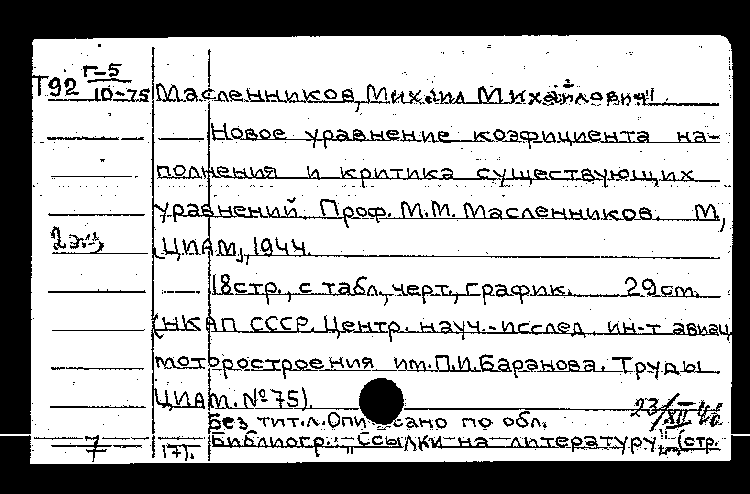 Т92 Г-5
10-75 Масленников, Михаил Михайлович
Новое уравнение коэфициента на-
полнения и критика существующих
уравнений. Проф. М.М. Масленников. М,
2 экз [ЦИАМ], 1944.
18 стр., с табл., черт., график. 29 cm.
(НКАП СССР. Центр. науч.-исслед. ин-т авиац
моторостроения им. П.И. Баранова. Труды
ЦИАМ. № 75).
Без тит.л. Описано по обл. 23/XII
7 17). Библиогр.: "Ссылки на литературу" (стр.